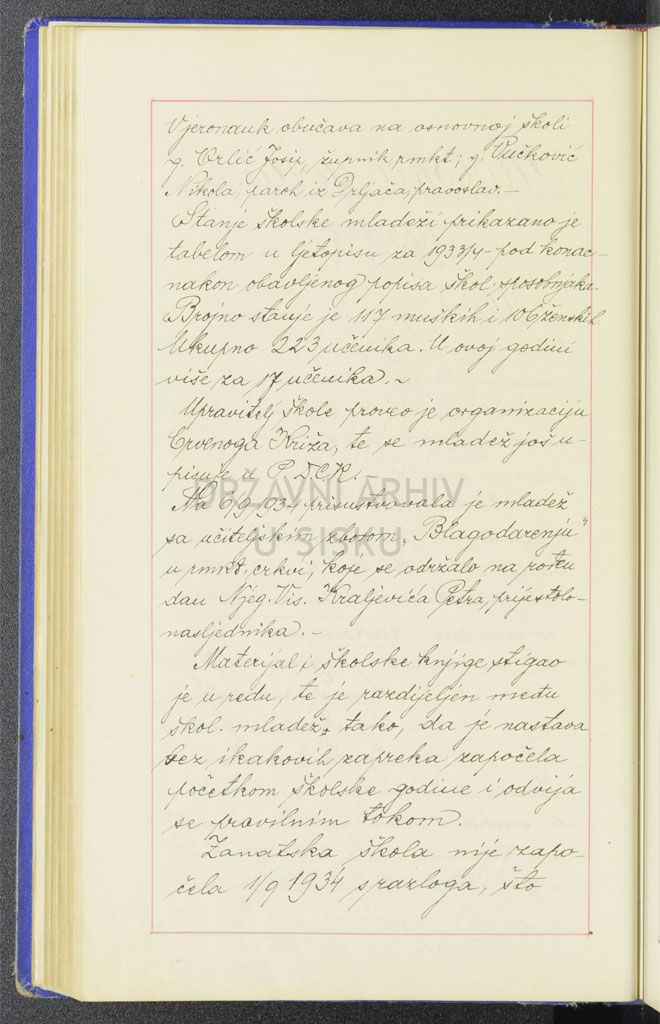 Vjeronauk obučava na osnovnoj školi
g. Orlić Josip, župnik rmkt; g. Vučković
Nikola, paroh iz Drljača, pravoslav. –
Stanje školske mladeži prikazano je
tabelom u ljetopisu za 1933/4 – pod konac –
nakon obavljenog popisa škol. sposobnjaka.
Brojno stanje je 117 muških i 106 ženskih.
Ukupno 223 učenika. U ovoj godini
više za 17 učenika. ~
Upravitelj škole proveo je organizaciju
Crvenoga Križa, te se mladež još u-
pisuje u P.D.C.K. –
DRŽAVNI ARHIV
Na 6/9 1934 prisustvovala je mladež
sa učiteljskim zborom „Blagodarenju"
U SISKU
u rmkt. crkvi, koje se održalo na rođen
dan Njeg. Vis. Kraljevića Petra, prijestolo-
nasljednika. –
Materijal i školske knjige stigao
je u redu, te je razdijeljen među
škol. mladež, tako, da je nastava
bez ikakovih zapreka započela
početkom školske godine i odvija
se pravilnim tokom.
Zanatska škola nije zapo-
čela 1/9 1934 s razloga, što